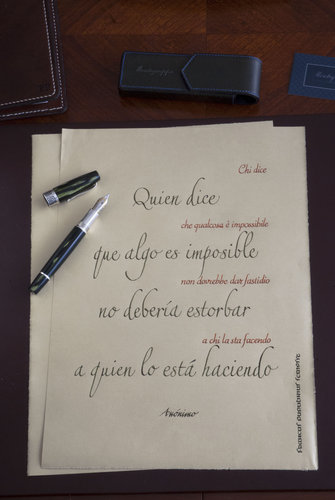 Montegrappa
Chi dice
Quien dice
che qualcosa è impossibile
que algo es imposible
non dovrebbe dar fastidio
no debería estorbar
a chi la sta facendo
a quien lo está haciendo
Anónimo